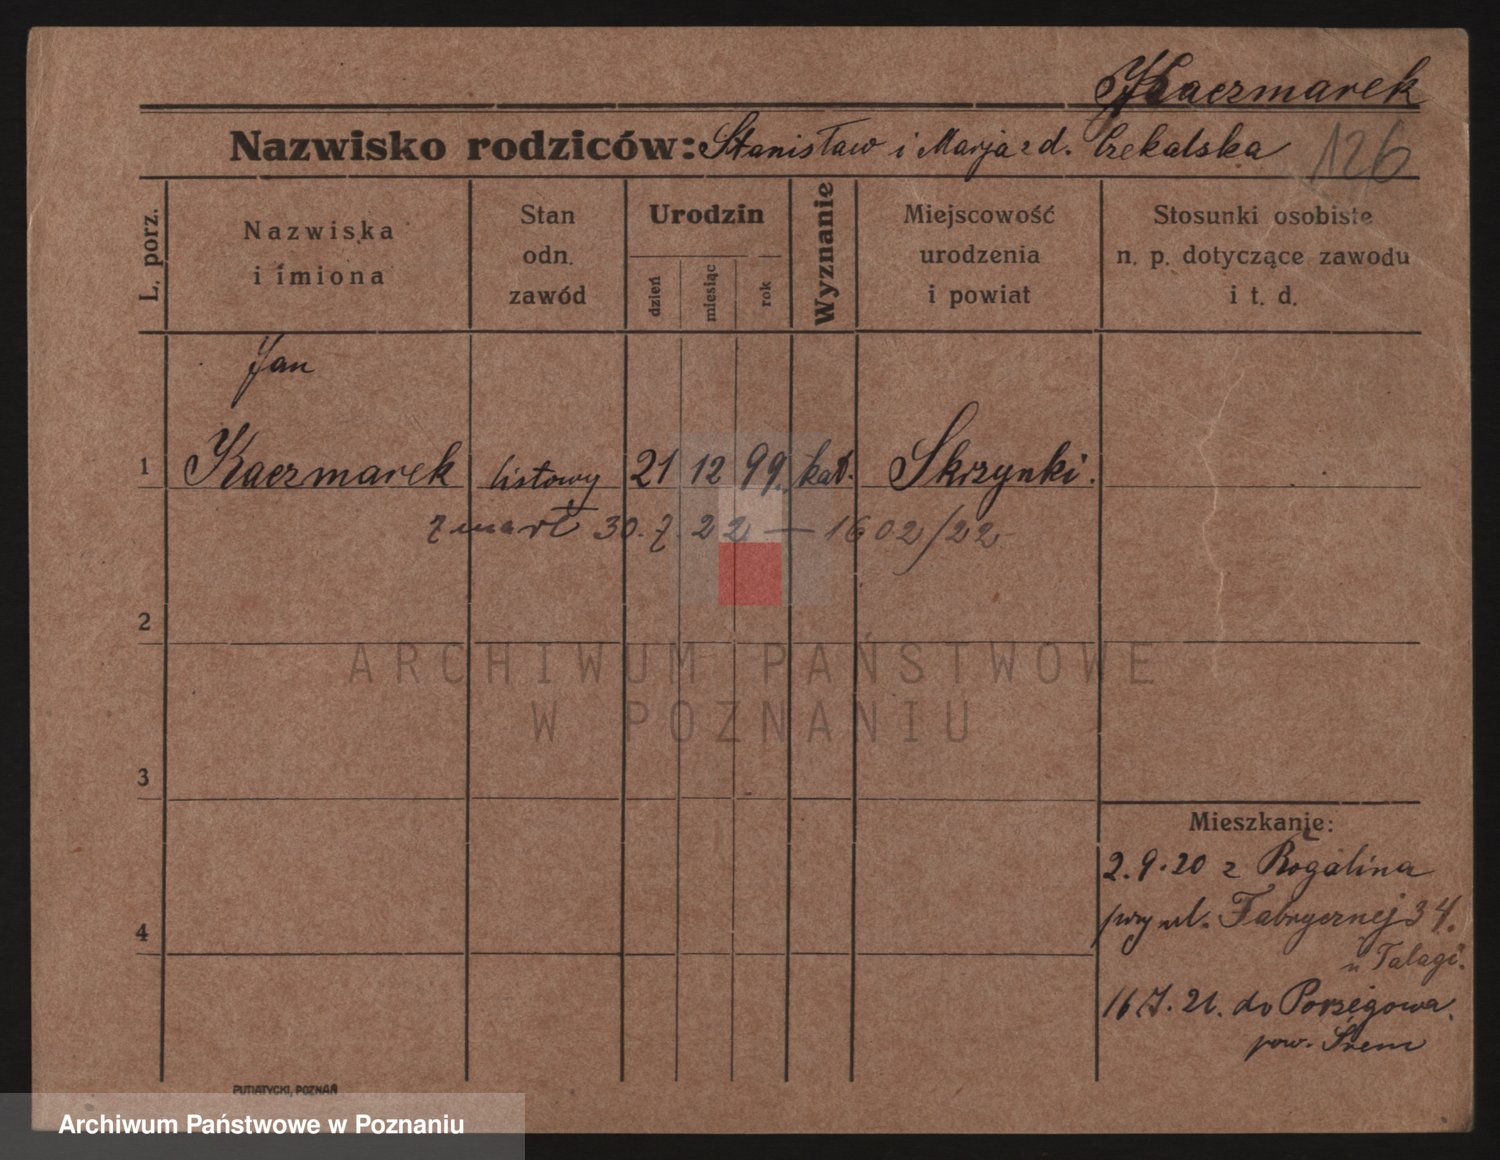 Kaczmarek
Nazwisko rodziców: Stanisław i Marja z d. Czekalska
126
L. porz.
Nazwiska i imiona
Stan odn. zawód
Urodzin
dzień
miesiąc
rok
Wyznanie
Miejscowość urodzenia i powiat
Stosunki osobiste n. p. dotyczące zawodu i t. d.
Jan
1 Kaczmarek listowy 21 12 99. kat. Skrzynki.
zmarł 30.7.22 — 1602/22
2
ARCHIWUM PAŃSTWOWE
W POZNANIU
3
Mieszkanie:
2.9.20 z Rogalina
przy ul. Fabrycznej 34.
4
u Talagi.
16.7.21. do
pow. Śrem
PUTIATYCKI, POZNAŃ
Archiwum Państwowe w Poznaniu